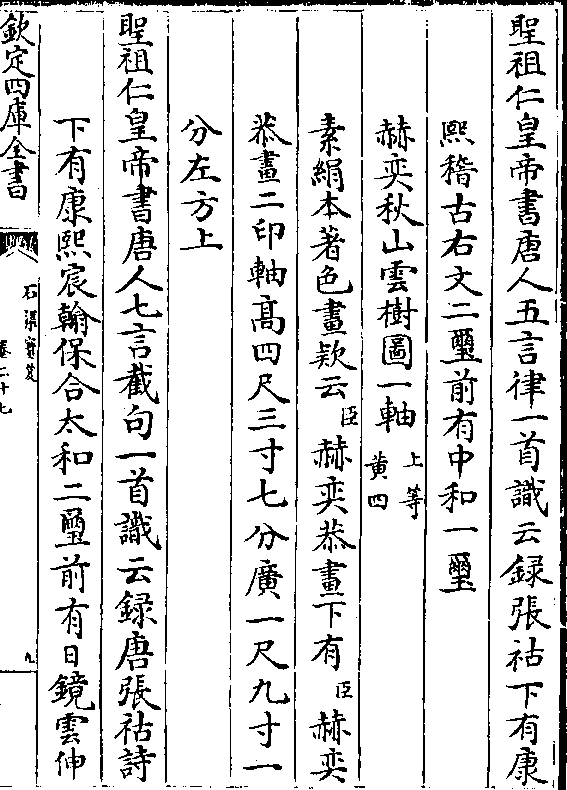 聖祖仁皇帝書唐人五言律一首識云録張祜下有康
熙稽古右文二璽前有中和一璽
赫奕秋山雲樹圖一軸 上等 黄四
素絹本著色畫款云 臣 赫奕恭畫下有 臣 赫奕
恭畫二印軸高四尺三寸七分廣一尺九寸一
分左方上
聖祖仁皇帝書唐人七言截句一首識云録唐張祜詩
下有康熙宸翰保合太和二璽前有日鏡雲伸
欽定四庫全書
石渠寶笈
卷二十七
九